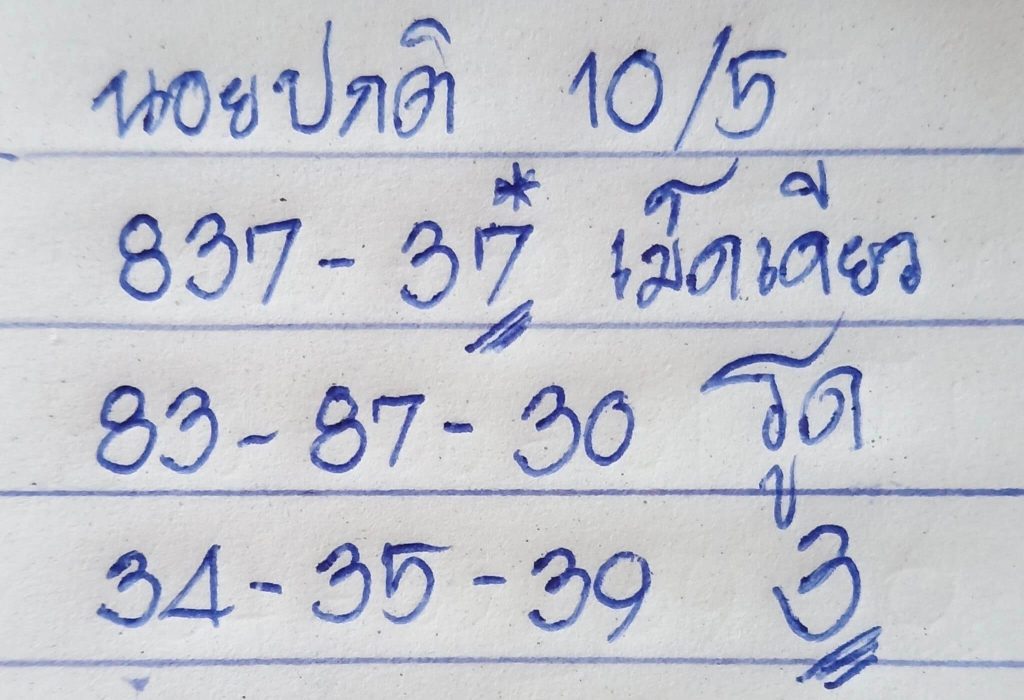 นอยปกติ 10/5
837 - 37* เม็ดเดียว
83 - 87 - 30 รูด
34 - 35 - 39 3